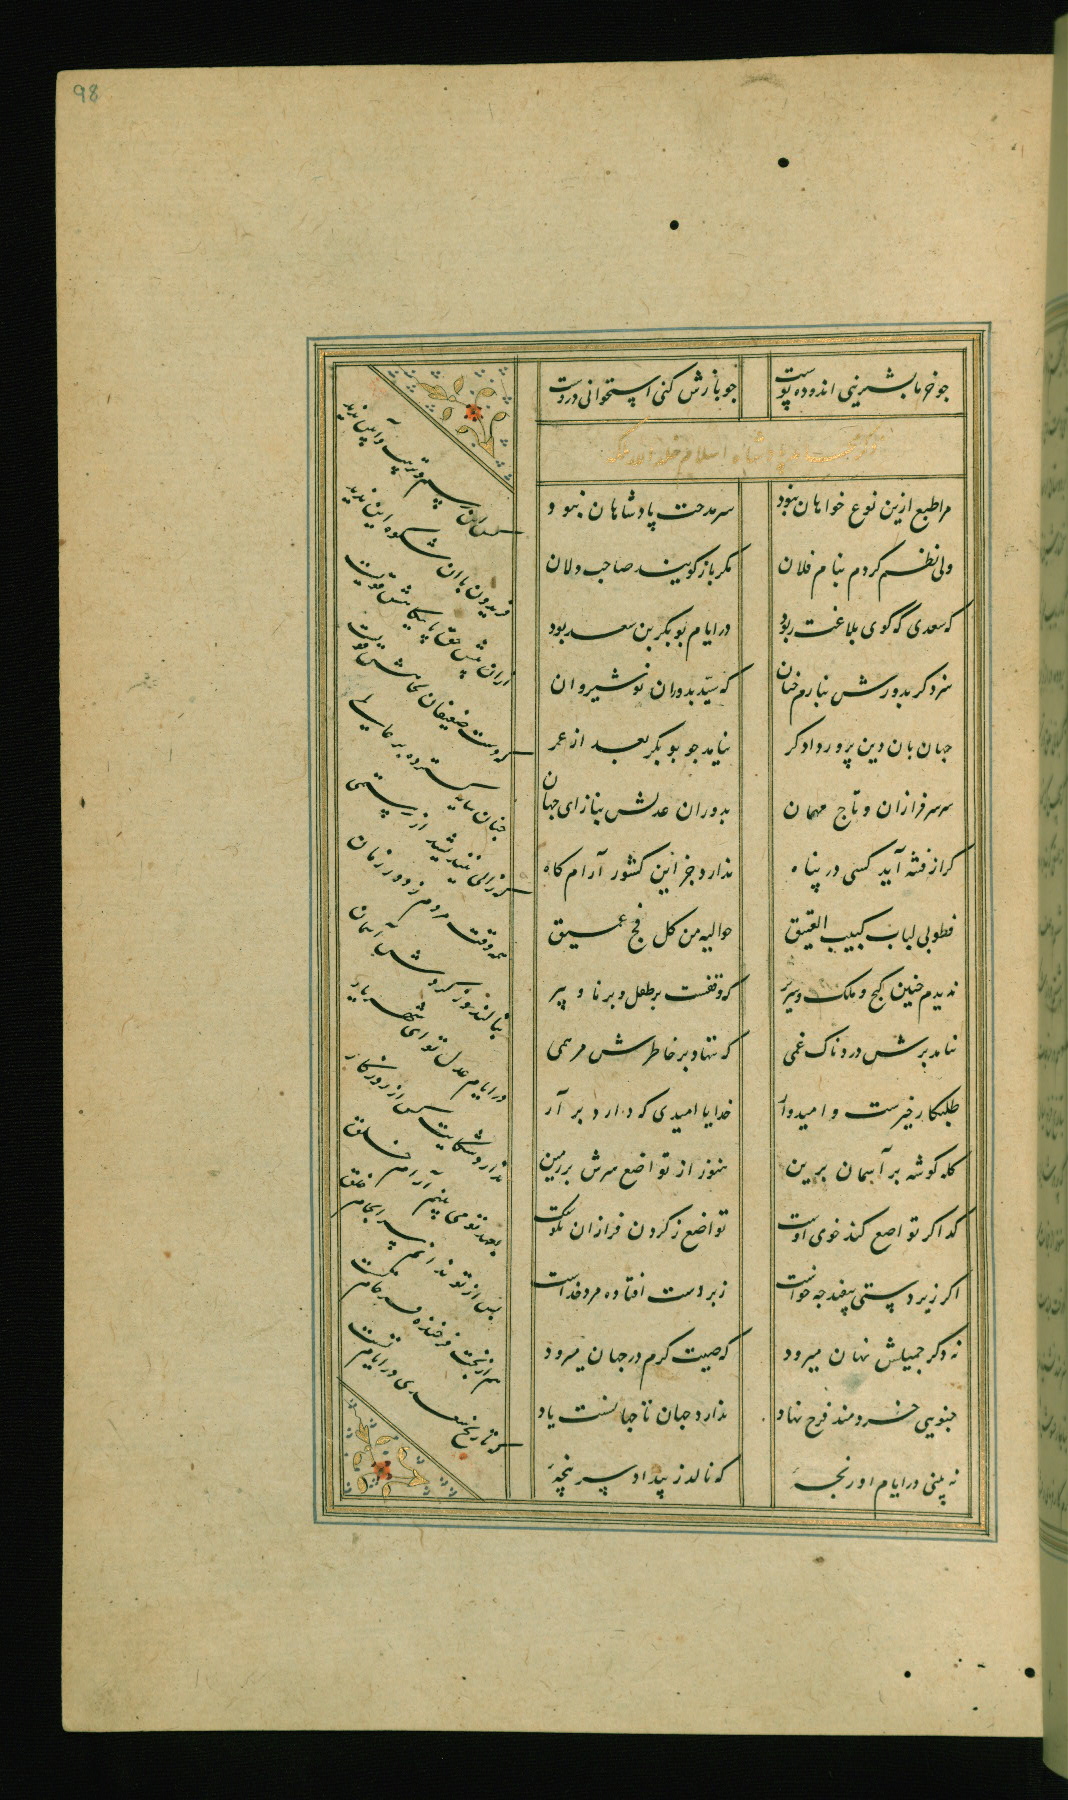 98
چو خرما بشیرینی اندوده پوست
چو بازش کنی استخوانی دروست
پادشاه اسلام خلد الله ملکه
مرا طبع ازین نوع خواهان نبود
سر مدحت پادشاهان نبود
ولی نظم کردم بنام فلان
مگر باز گویند صاحب دلان
که سعدی که گوی بلاغت ربود
در ایام بوبکر بن سعد بود
سزد گر بدورش بنازم چنان
که سید بدوران نوشیروان
جهان بان دین پرور دادگر
نیامد چو بوبکر بعد از عمر
سر سرفرازان و تاج مهان
بدوران عدلش بناز ای جهان
گر از فتنه آید کسی در پناه
ندارد جز این کشور آرام گاه
فطوبی لباب کبیت العتیق
حوالیه من کل فج عمیق
ندیدم چنین گنج و ملک و سریر
که وقفست بر طفل و برنا و پیر
نیامد برش دردناک غمی
که ننهاد بر خاطرش مرهمی
طلبکار خیرست و امیدوار
خدایا امیدی که دارد بر آر
کله گوشه بر آسمان برین
هنوز از تواضع سرش بر زمین
گدا گر تواضع کند خوی اوست
تواضع ز گردن فرازان نکوست
اگر زیردستی بیفتد چه خاست
زبردست افتاده مرد خداست
نه ذکر جمیلش نهان میرود
که صیت کرم در جهان میرود
چنویی خردمند فرخ نهاد
ندارد جهان تا جهانست یاد
نه بینی در ایام او رنجهٔ
که نالد ز بیداد سرپنجهٔ
کس این رسم و ترتیب و آیین ندید
فریدون با آن شکوه این ندید
از آن پیش حق پایگاهش قویست
که دست ضعیفان بجاهش قویست
چنان سایه گسترده بر عالمی
که زالی نیندیشد از رستمی
همه وقت مردم ز دور زمان
بنالند و ز گردش آسمان
در ایام عدل تو ای شهریار
ندارد شکایت کس از روزگار
بعهد تو می بینم آرام خلق
پس از تو ندانم سرانجام خلق
هم از بخت فرخنده فرجام تست
که تاریخ سعدی در ایام تست